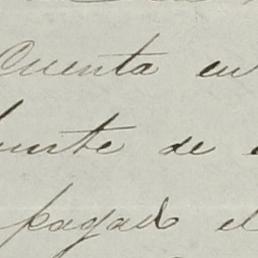 Cuenta en
de
pagado el